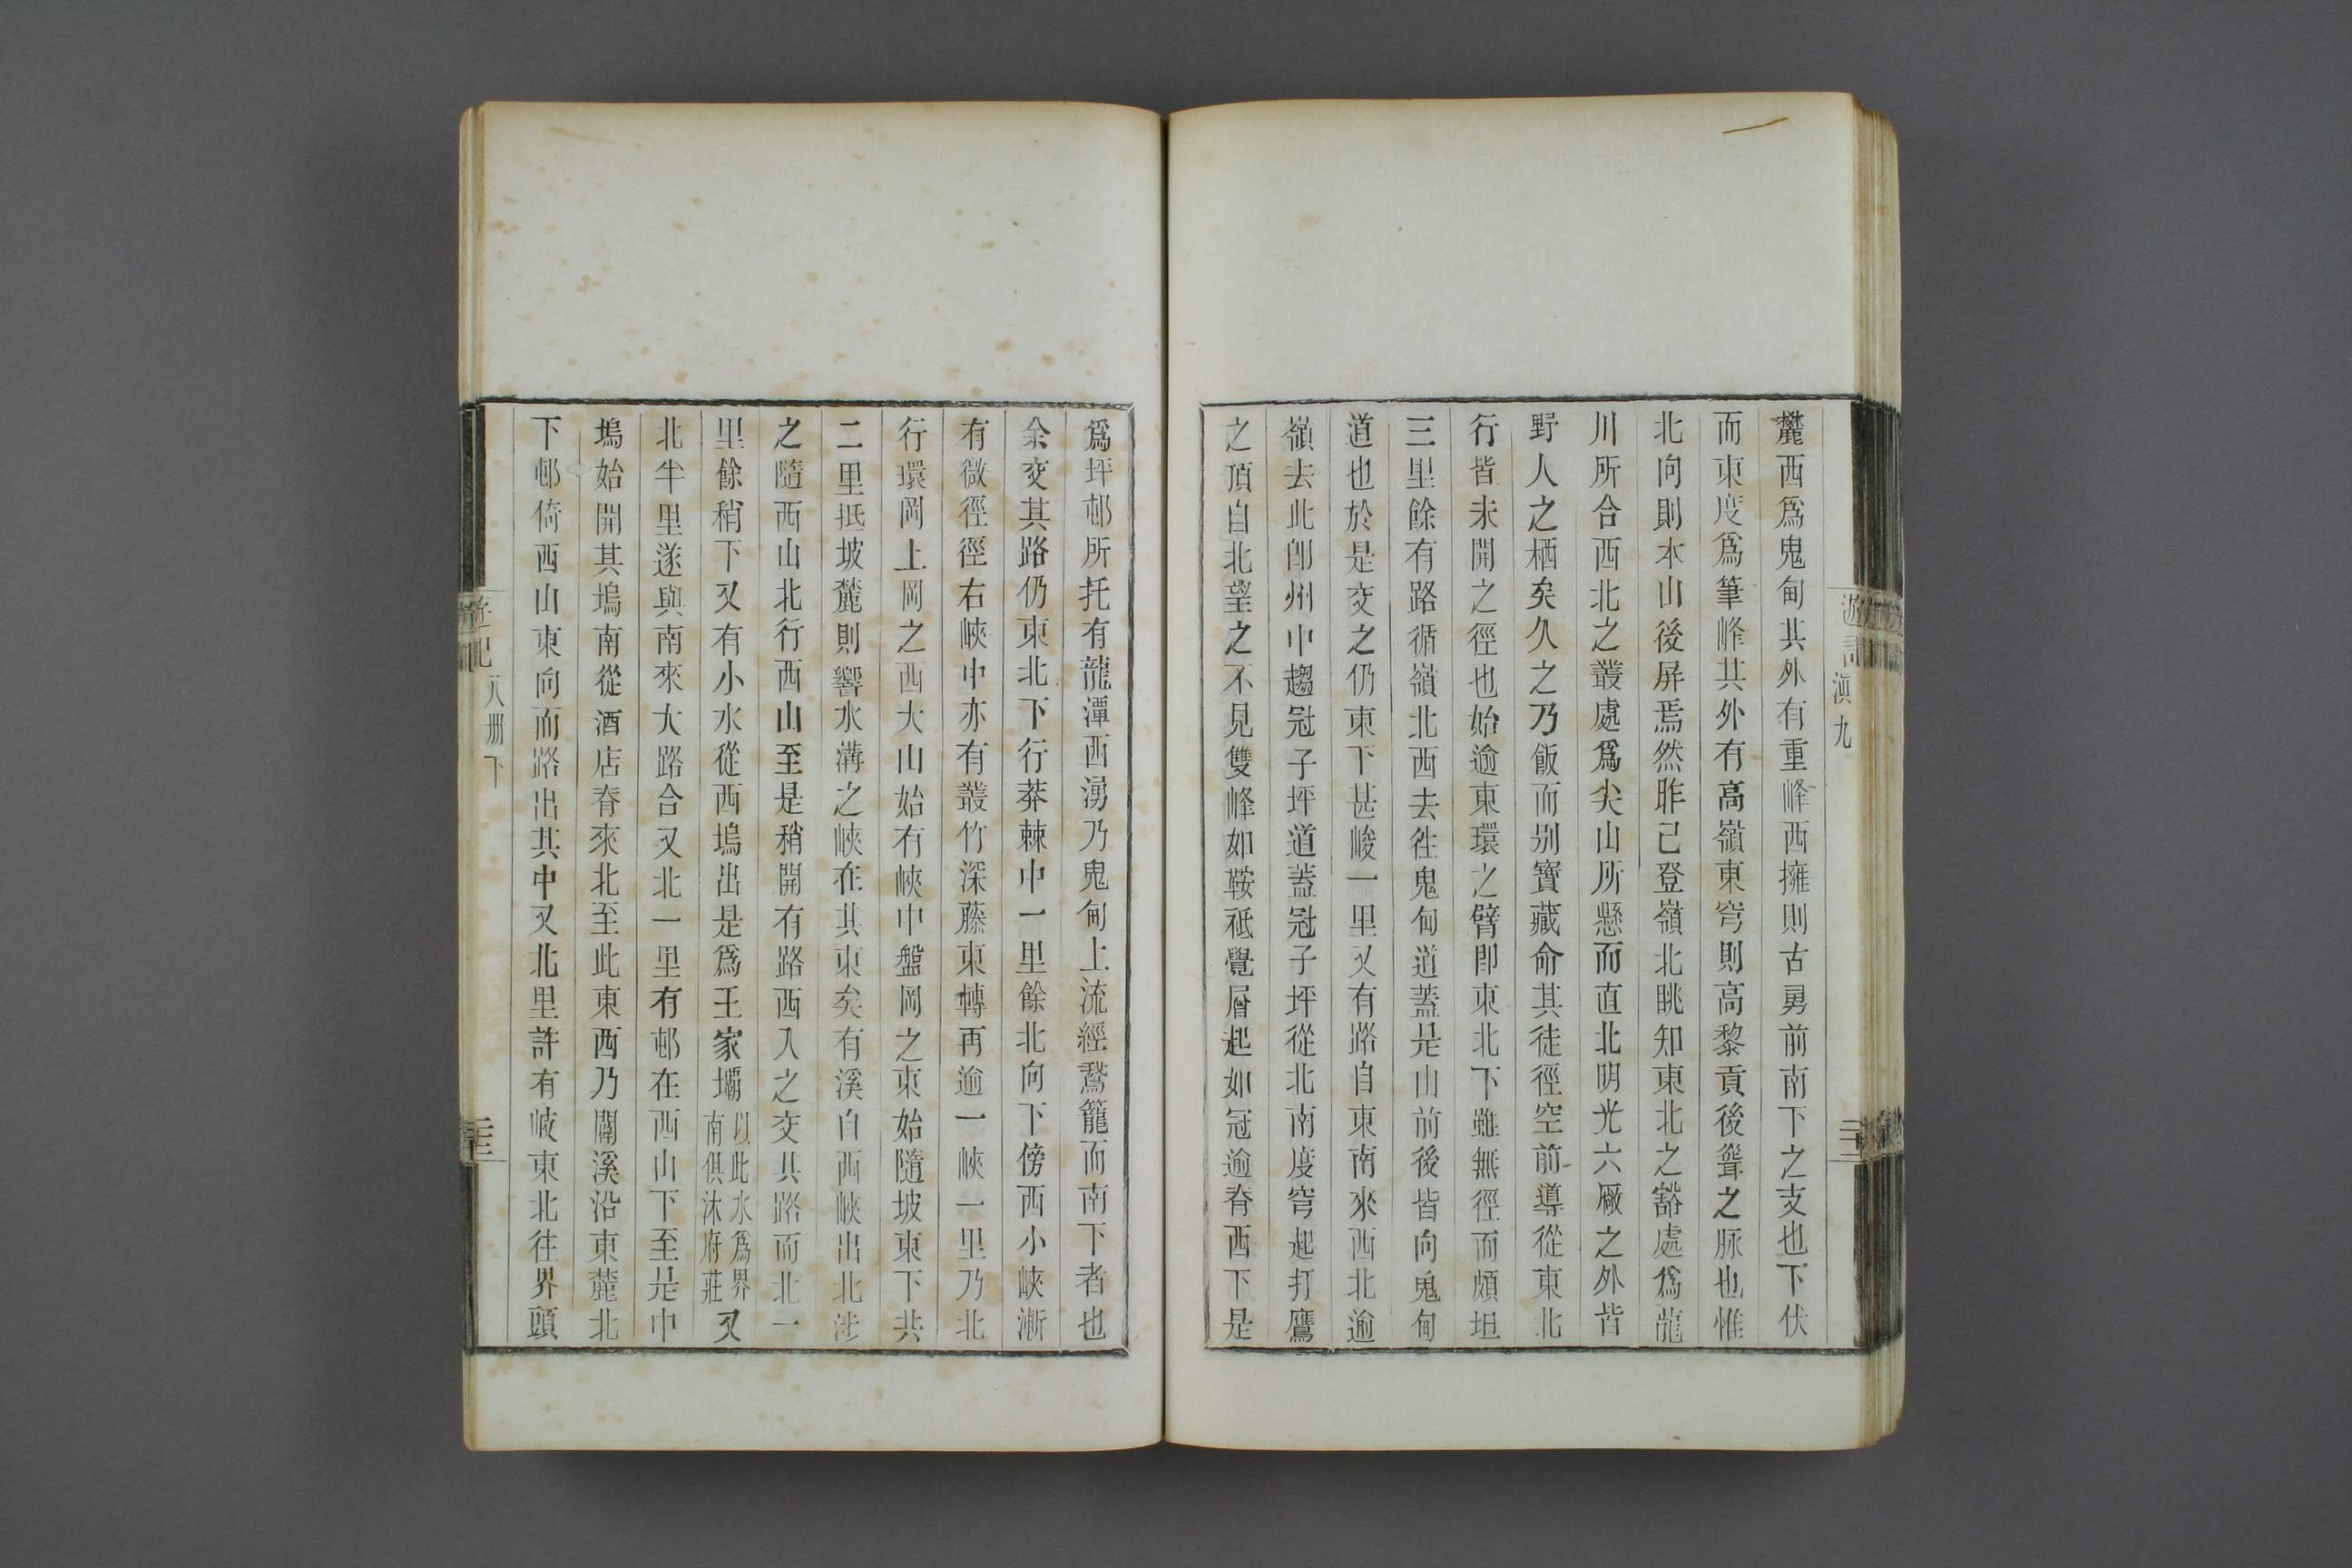 麓西爲鬼甸其外有重峰西擁則古勇前南下之支也下伏
而東度爲筆峰其外有高嶺東穹則高黎貢後聳之脈也惟
北向則本山後屏焉然昨已登嶺北眺知東北之豁處爲龍
川所合西北之叢處爲尖山所懸而直北明光六厰之外皆
野人之栖矣久之乃飯而别寶藏命其徒徑空前導從東北
行皆未開之徑也始逾東環之臂即東北下雖無徑而頗坦
三里餘有路循嶺北西去徃鬼甸道葢是山前後皆向鬼甸
道也於是交之仍東下甚峻一里又有路自東南來西北逾
嶺去此卽州中趨冠子坪道葢冠子坪從北南度穹起打鷹
之頂自北望之不見雙峰如鞍祗覺層起如冠逾脊西下是
爲坪邨所托有龍潭西湧乃鬼甸上流經鵞籠而南下者也
余交其路仍東北下行莽棘中一里餘北向下傍西小峽漸
有微徑徑右峽中亦有叢竹深藤東轉再逾一峽一里乃北
行環岡上岡之西大山始有峽中盤岡之東始隨坡東下共
二里抵坡麓則響水溝之峽在其東矣有溪自西峽出北涉
之隨西山北行西山至是稍開有路西入之交其路而北一
里餘稍下又有小水從西塢出是爲王家壩以此水爲界南俱沐府莊又
北半里遂與南來大路合又北一里有邨在西山下至是中
塢始開其塢南從酒店脊來北至此東西乃闢溪沿東麓北
下邨倚西山東向而路出其中又北里許有岐東北往界頭
遊記
滇九
遊記
八册下